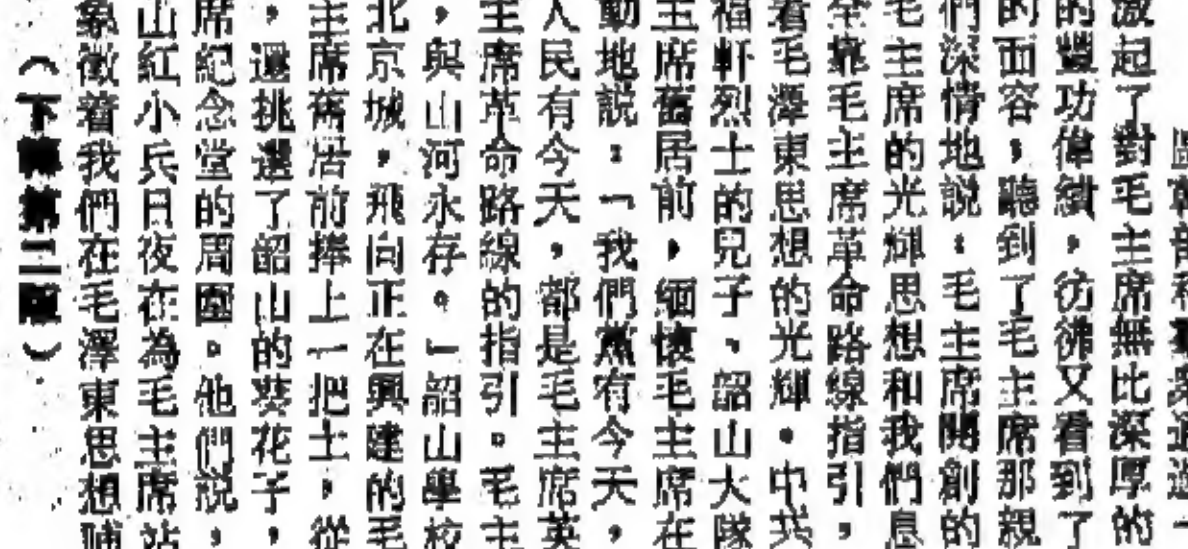 激起了對毛主席無比深厚的
的豐功偉績，彷彿又看到了
的面容，聽到了毛主席那親
們深情地說：毛主席開創的
毛主席的光輝思想和我們息
靠毛主席革命路線指引，
着毛澤東思想的光輝。中共
福軒烈士的兒子、韶山大隊
主席舊居前，緬懷毛主席在
動地說：「我們黨有今天，
人民有今天，都是毛主席英
主席革命路線的指引。毛主
，與山河永存。」韶山學校
北京城，飛向正在興建的毛
主席舊居前捧上一把土，從
，還挑選了韶山的葵花子，
席紀念堂的周圍。他們說，
山紅小兵日夜在為毛主席站
象徵着我們在毛澤東思想哺
（下轉第二版）